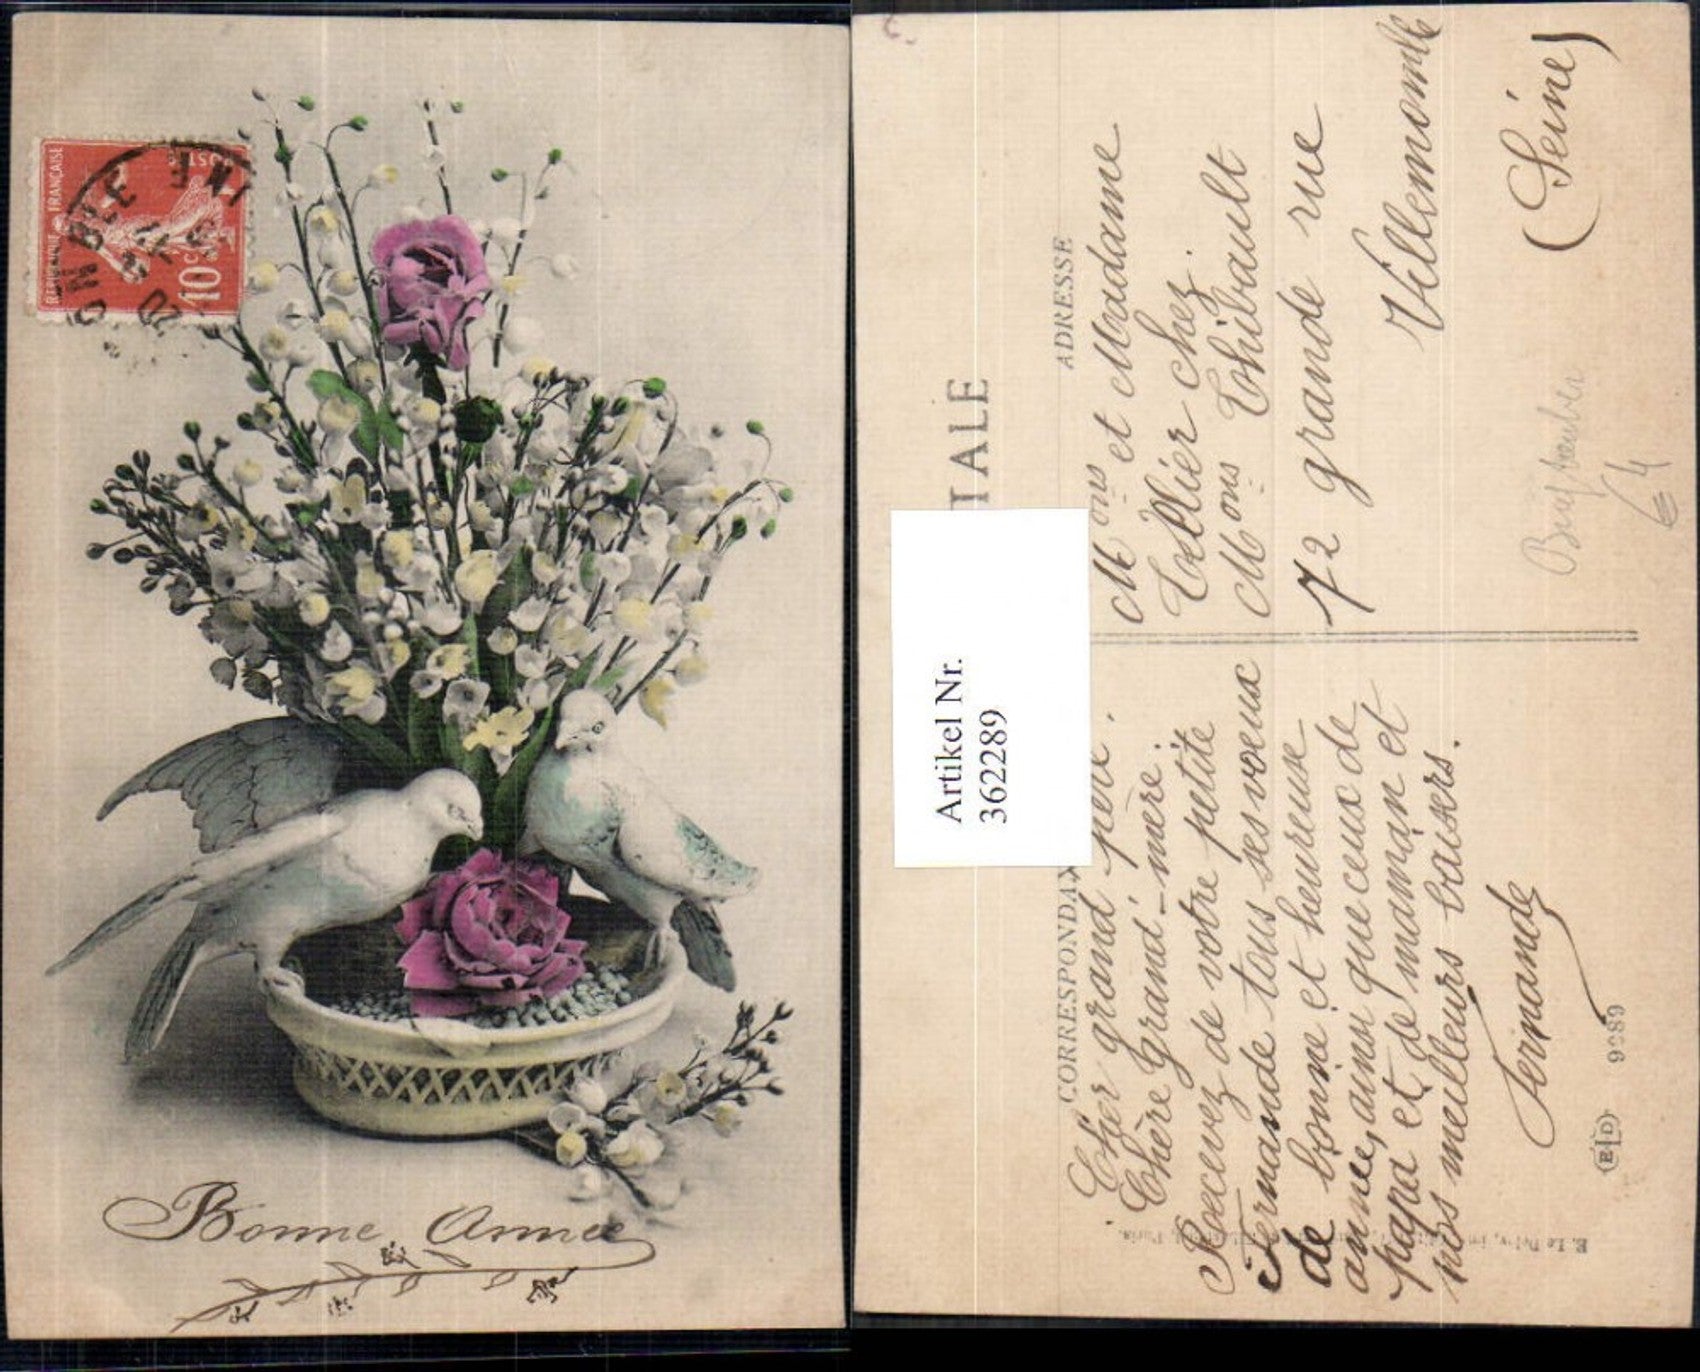 RÉPUBLIQUE FRANÇAISE
POSTES
10
Bonne Année
TALE
ADRESSE
Mons et Madame
Tellier chez
Mons Thibault
72 grande rue
Villemomble
(Seine)
€ 4
Artikel Nr.
362289
CORRESPONDA
Cher grand père.
Chère Grand'-mère.
Recevez de votre petite
Fernande tous ses voeux
de bonne et heureuse
année, ainsi que ceux de
papa et de maman et
nos meilleurs baisers.
Fernande
ELD 9989